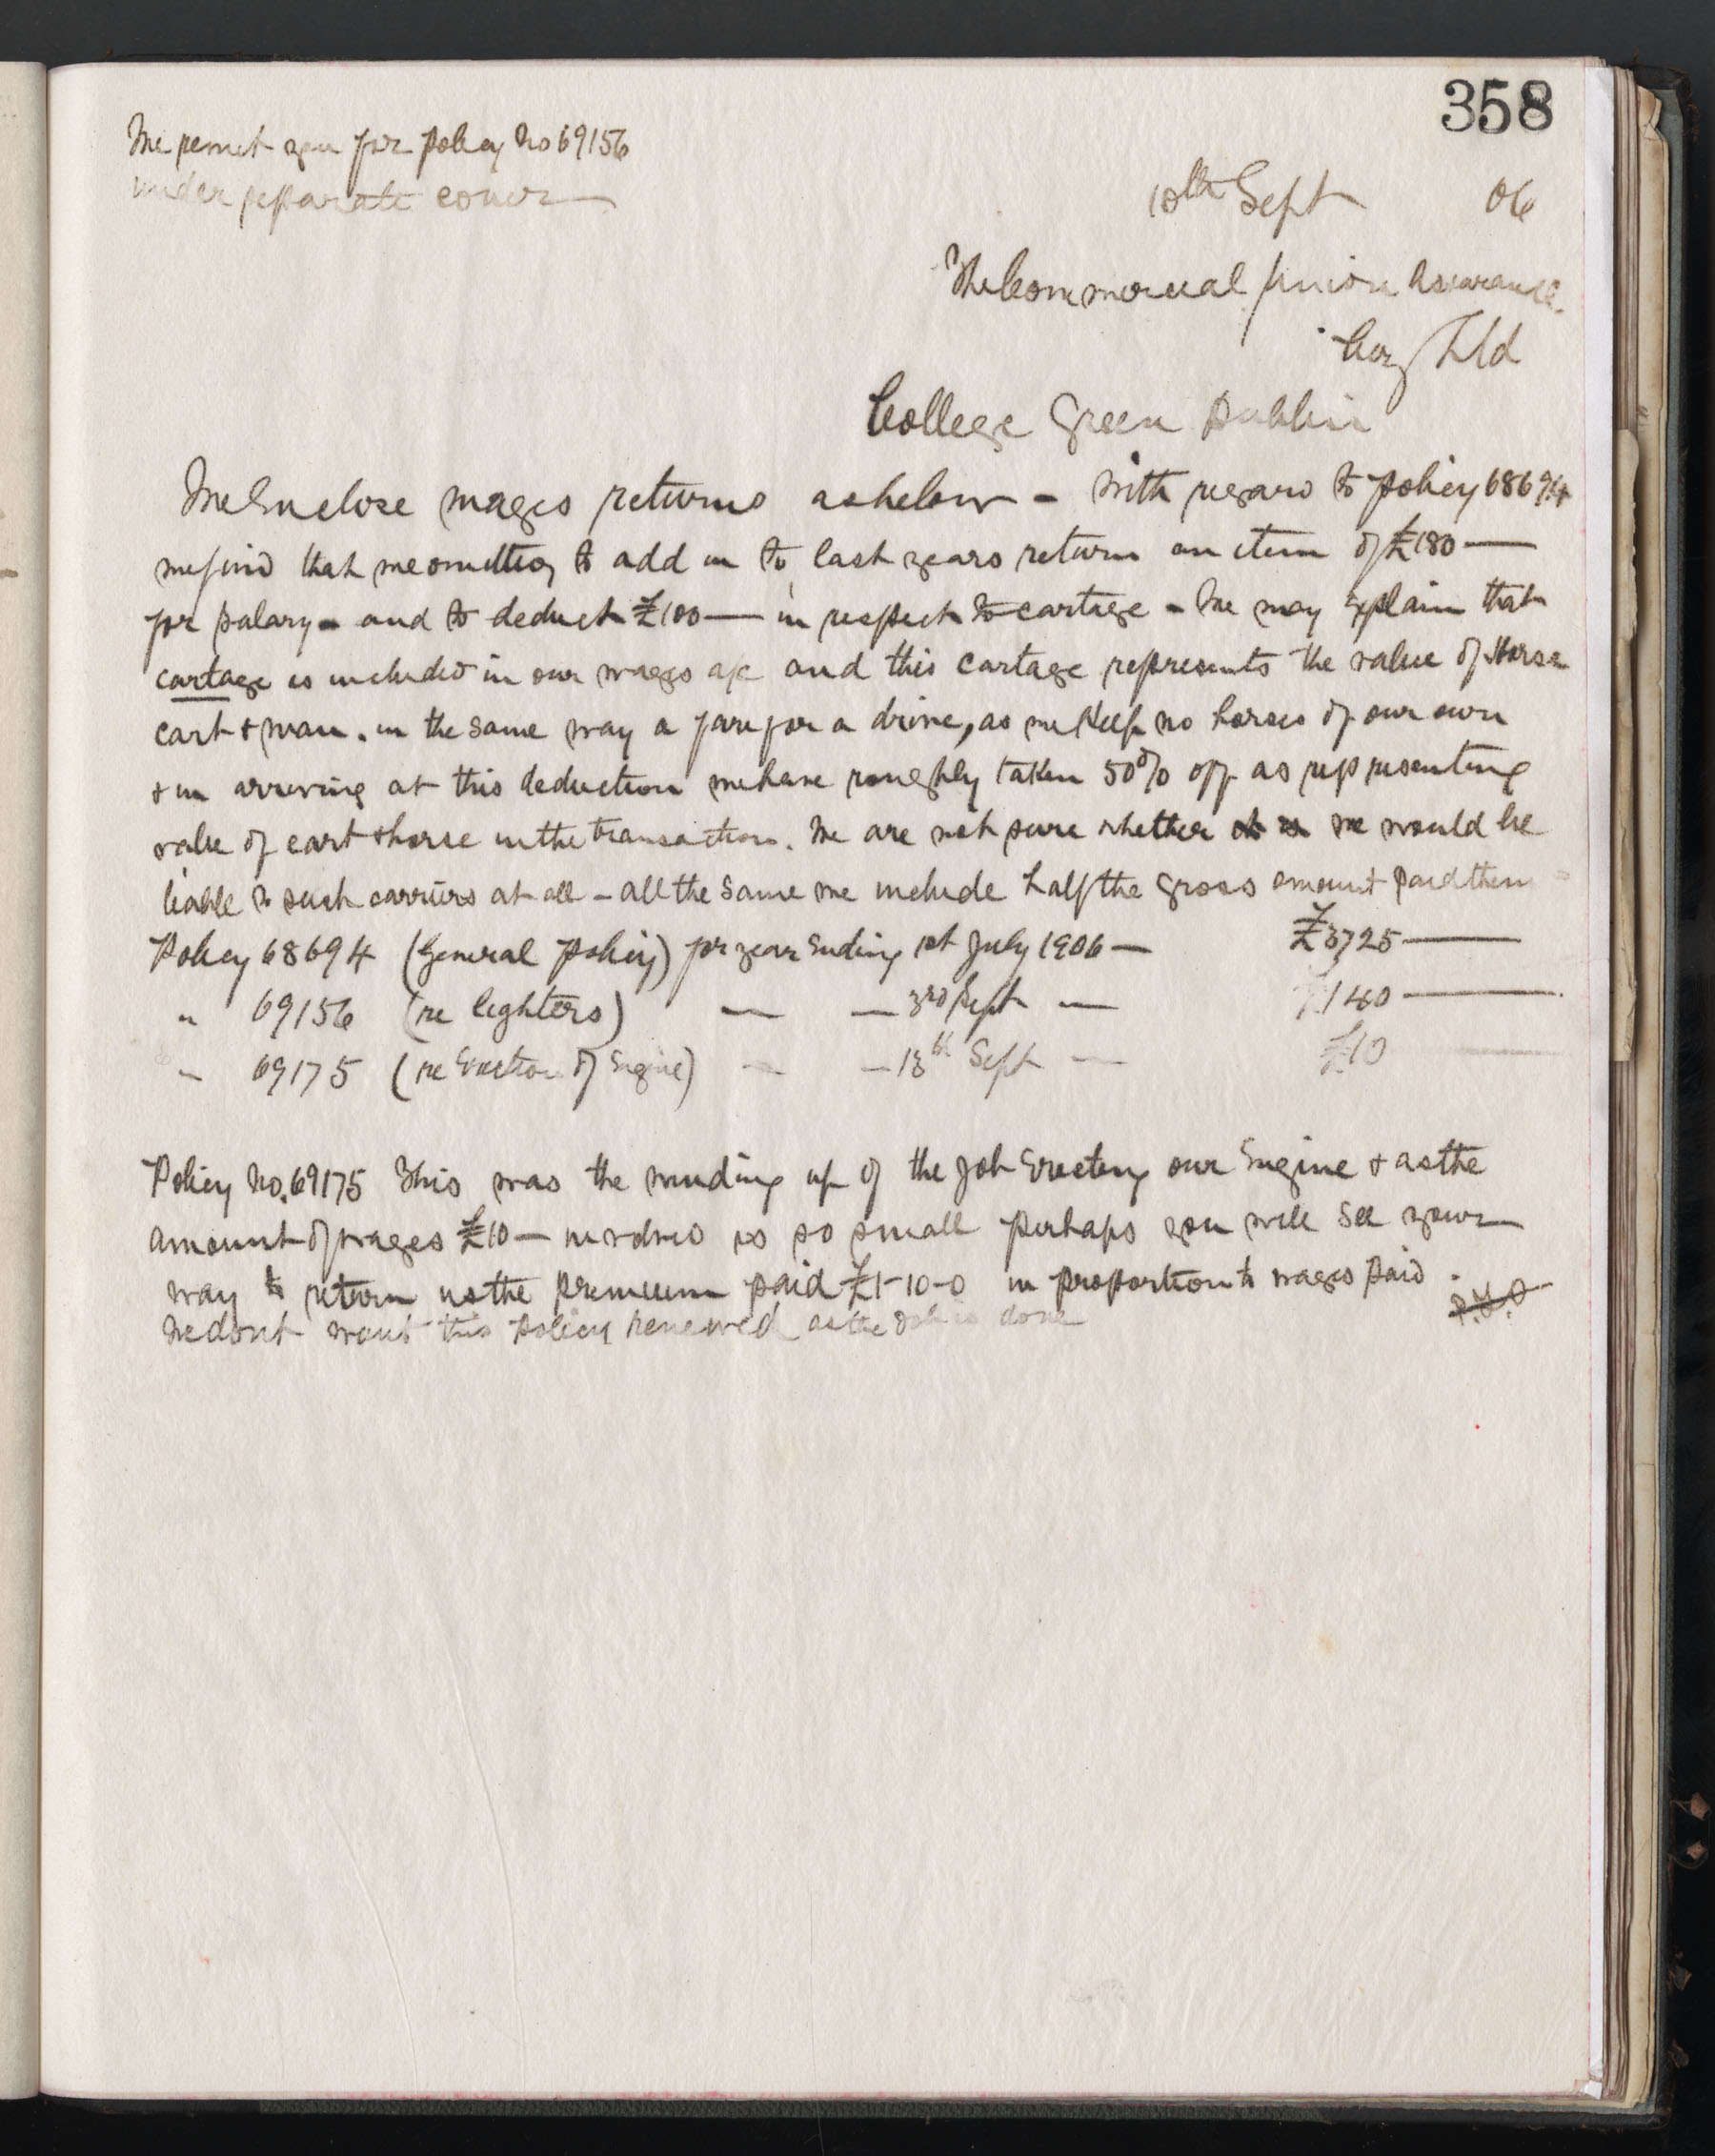 358
We remit you for policy No 69156
under separate cover
10th Sept 06
The Commercial Union Assurance
Coy Ltd
College Green Dublin
We Enclose wages returns as below - With regard to policy 68694
we find that we omitted to add in to last years return an item of £180 —
for salary - and to deduct £100 — in respect to cartage - We may Explain that
cartage is included in our wages a/c and this cartage represents the value of Horse
cart & man. in the same way a fare for a drive, as we Keep no horses of our own
& in arriving at this deduction we have roughly taken 50% off as representing
value of cart & horse in the transaction. We are not sure whether we would be
liable to such carriers at all - all the same we include half the gross amount paid them
Policy 68694 (General policy) for year Ending 1st July 1906 — £3725 —
" 69156 (re lighters) — — 3rd Sept — £140 —
" 69175 (re Erection of Engine) — — 13th Sept — £10 —
Policy No. 69175 This was the winding up of the job Erecting our Engine & as the
amount of wages £10 — involved is so small perhaps you will See your
way to return us the premium paid £1-10-0 in proportion to wages paid.
We dont want this policy renewed as the job is done